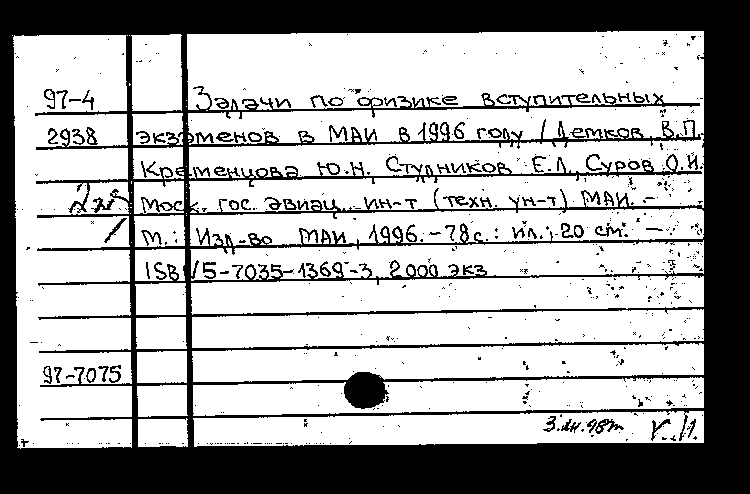 97-4 Задачи по физике вступительных
2938 экзаменов в МАИ в 1996 году / Детков В.П.
Кременцова Ю.Н., Студников Е.Л., Суров О.И.
Моск. гос. авиац. ин-т (техн. ун-т) МАИ. -
М.: Изд-во МАИ, 1996. - 78 с.: ил.; 20 см. -
ISBN 5-7035-1369-3, 2000 экз
97-7075